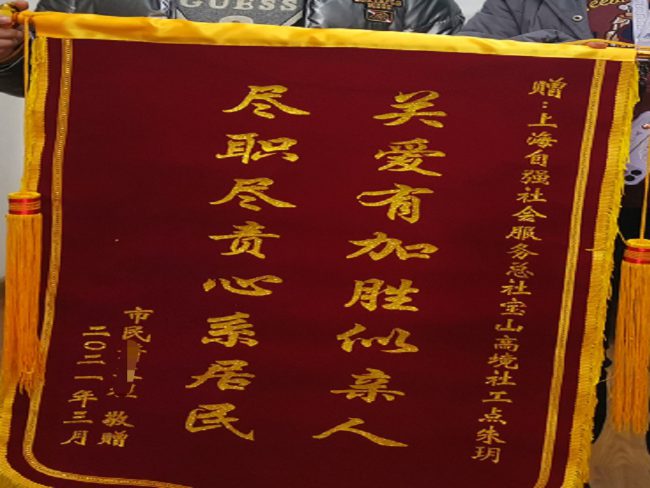 GUESS
赠：上海自强社会服务总社宝山高境社工点朱玥
关爱有加胜似亲人
尽职尽责心系居民
市民
敬赠
二〇二一年三月